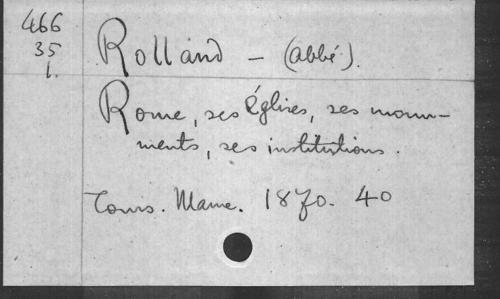 466
35
1.
Rolland - (abbé).
Rome, ses Églises, ses monu-
ments, ses institutions.
Tours. Mame. 1870. 40